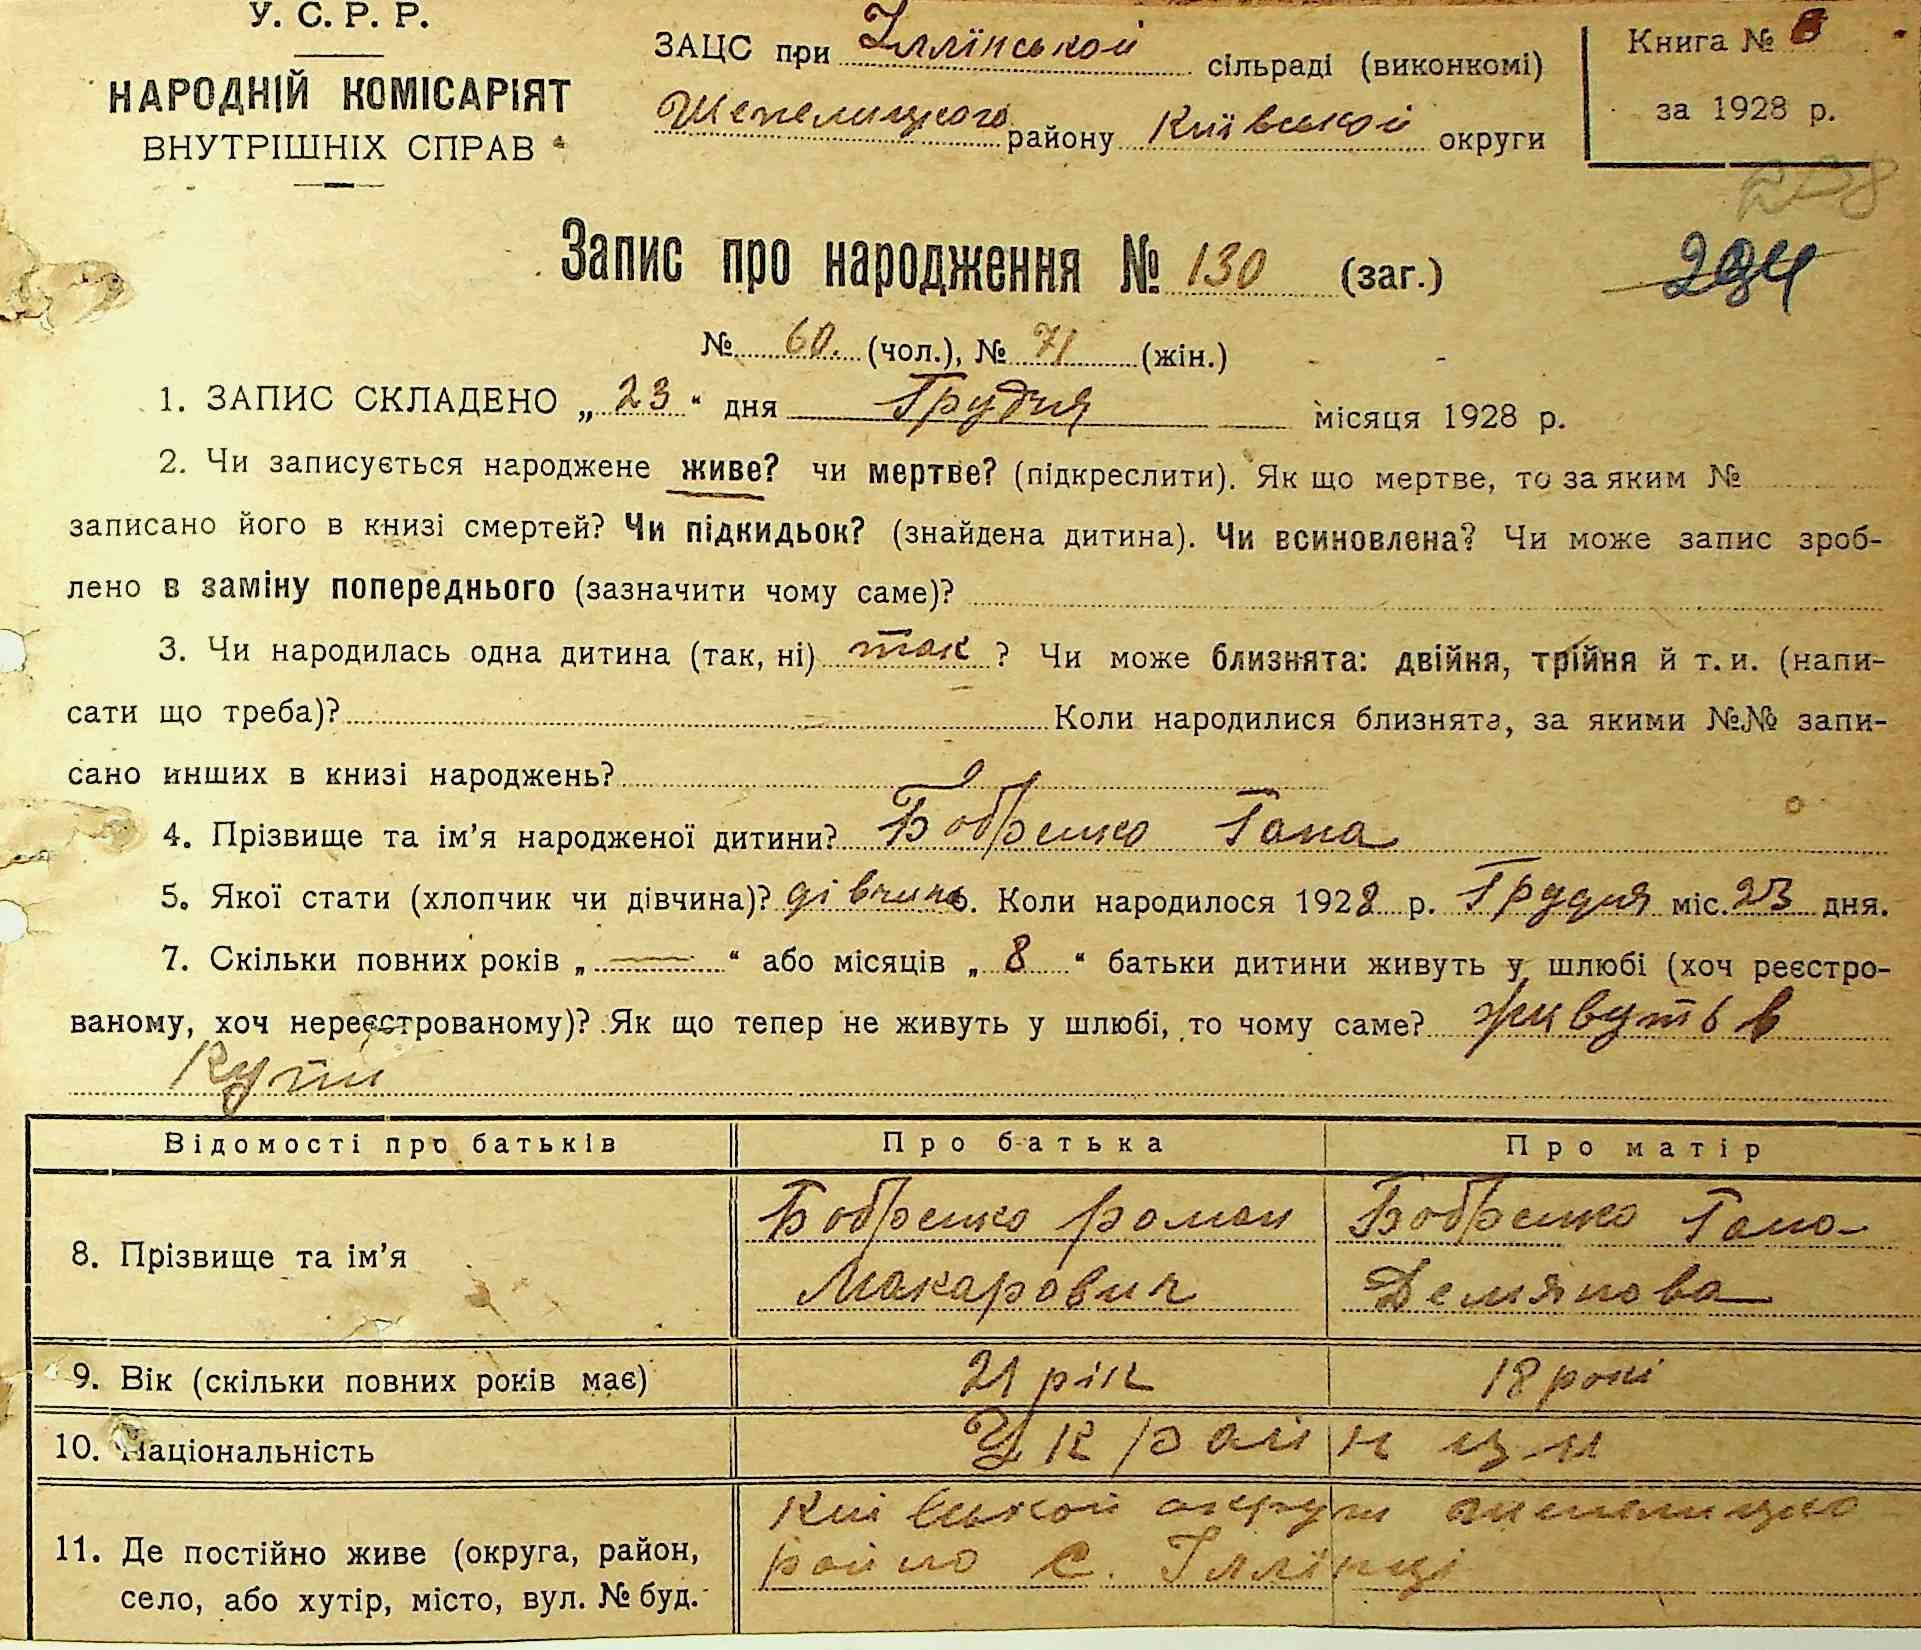 У. С. Р. Р.
НАРОДНІЙ КОМІСАРІЯТ
ВНУТРІШНІХ СПРАВ
ЗАЦС при Іллїнської сільраді (виконкомі)
Шепелицкого району Київської округи
Книга №
за 1928 р.
294
Запис про народження № 130 (заг.)
№ 60. (чол.), № 71 (жін.)
1. ЗАПИС СКЛАДЕНО „ 23 “ дня Грудня місяця 1928 р.
2. Чи записується народжене живе? чи мертве? (підкреслити). Як що мертве, то за яким №
записано його в книзі смертей? Чи підкидьок? (знайдена дитина). Чи всиновлена? Чи може запис зроб-
лено в заміну попереднього (зазначити чому саме)?
3. Чи народилась одна дитина (так, ні) так ? Чи може близнята: двійня, трійня й т. и. (напи-
сати що треба)? Коли народилися близнята, за якими №№ запи-
сано инших в книзі народжень?
4. Прізвище та ім’я народженої дитини? Бобренко Гана
5. Якої стати (хлопчик чи дівчина)? дівчина 6. Коли народилося 1928 р. Грудня міс. 23 дня.
7. Скільки повних років „ — “ або місяців „ 8 “ батьки дитини живуть у шлюбі (хоч реєстро-
ваному, хоч нереєстрованому)? Як що тепер не живуть у шлюбі, то чому саме? живуть в
Купи
Відомості про батьків Про батька Про матір
8. Прізвище та ім’я
Бобренко роман
Макарович
Бобренко Гана
Демянова
9. Вік (скільки повних років має) 21 рік 18 рокі
10. Національність Українци
11. Де постійно живе (округа, район,
село, або хутір, місто, вул. № буд.
Київської округи шепелицко
райно С. Іллїнці